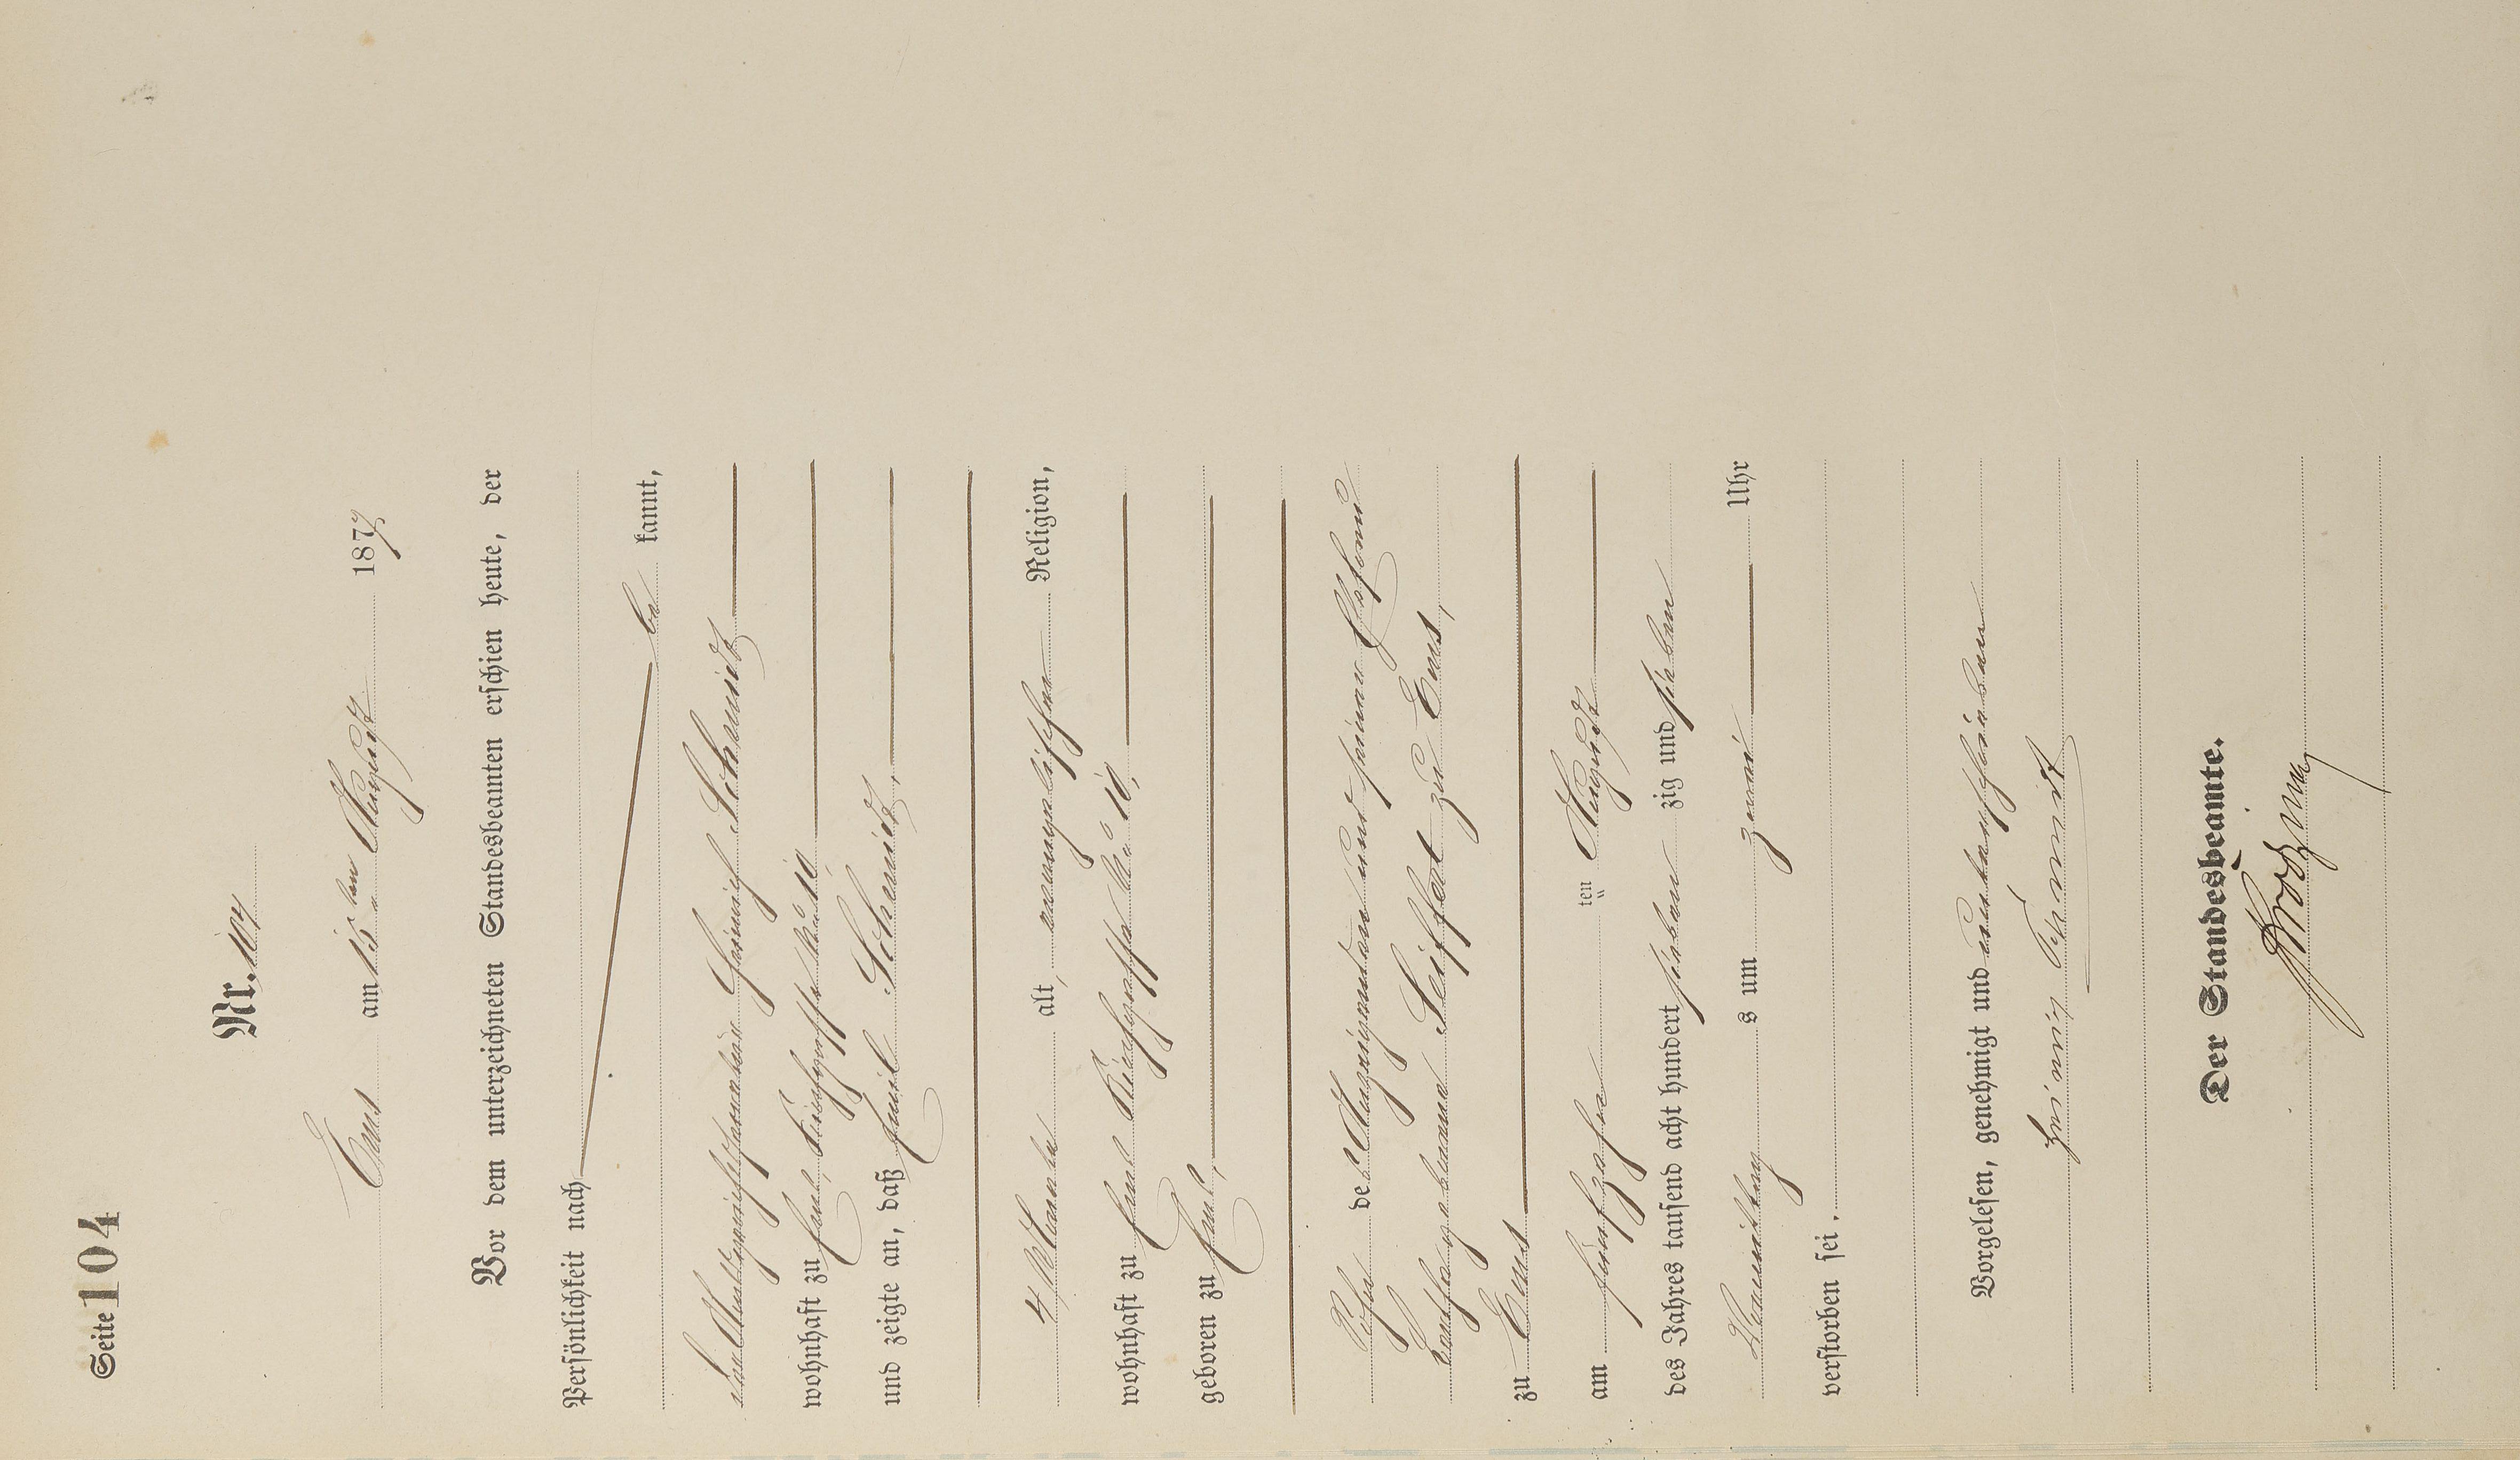 Seite 104
Nr. 104
Ems am 15ten August 1877
Vor dem unterzeichneten Standesbeamten erschien heute, der
Persönlichkeit nach
be kannt,
der Heinrich Schmidt
wohnhaft zu Ems, 10
und zeigte an, daß Emil Schmidt,
4 Monate alt, evangelischer Religion,
wohnhaft zu Ems 10,
geboren zu Ems,
Sohn des und seiner Ehefrau
geborene Seiffert zu Ems,
zu Ems
am fünfzehn ten August
des Jahres tausend acht hundert sieben zig und sieben
Vormittag s um zwei Uhr
verstorben sei.
Vorgelesen, genehmigt und unterschrieben
Heinrich Schmidt
Der Standesbeamte.